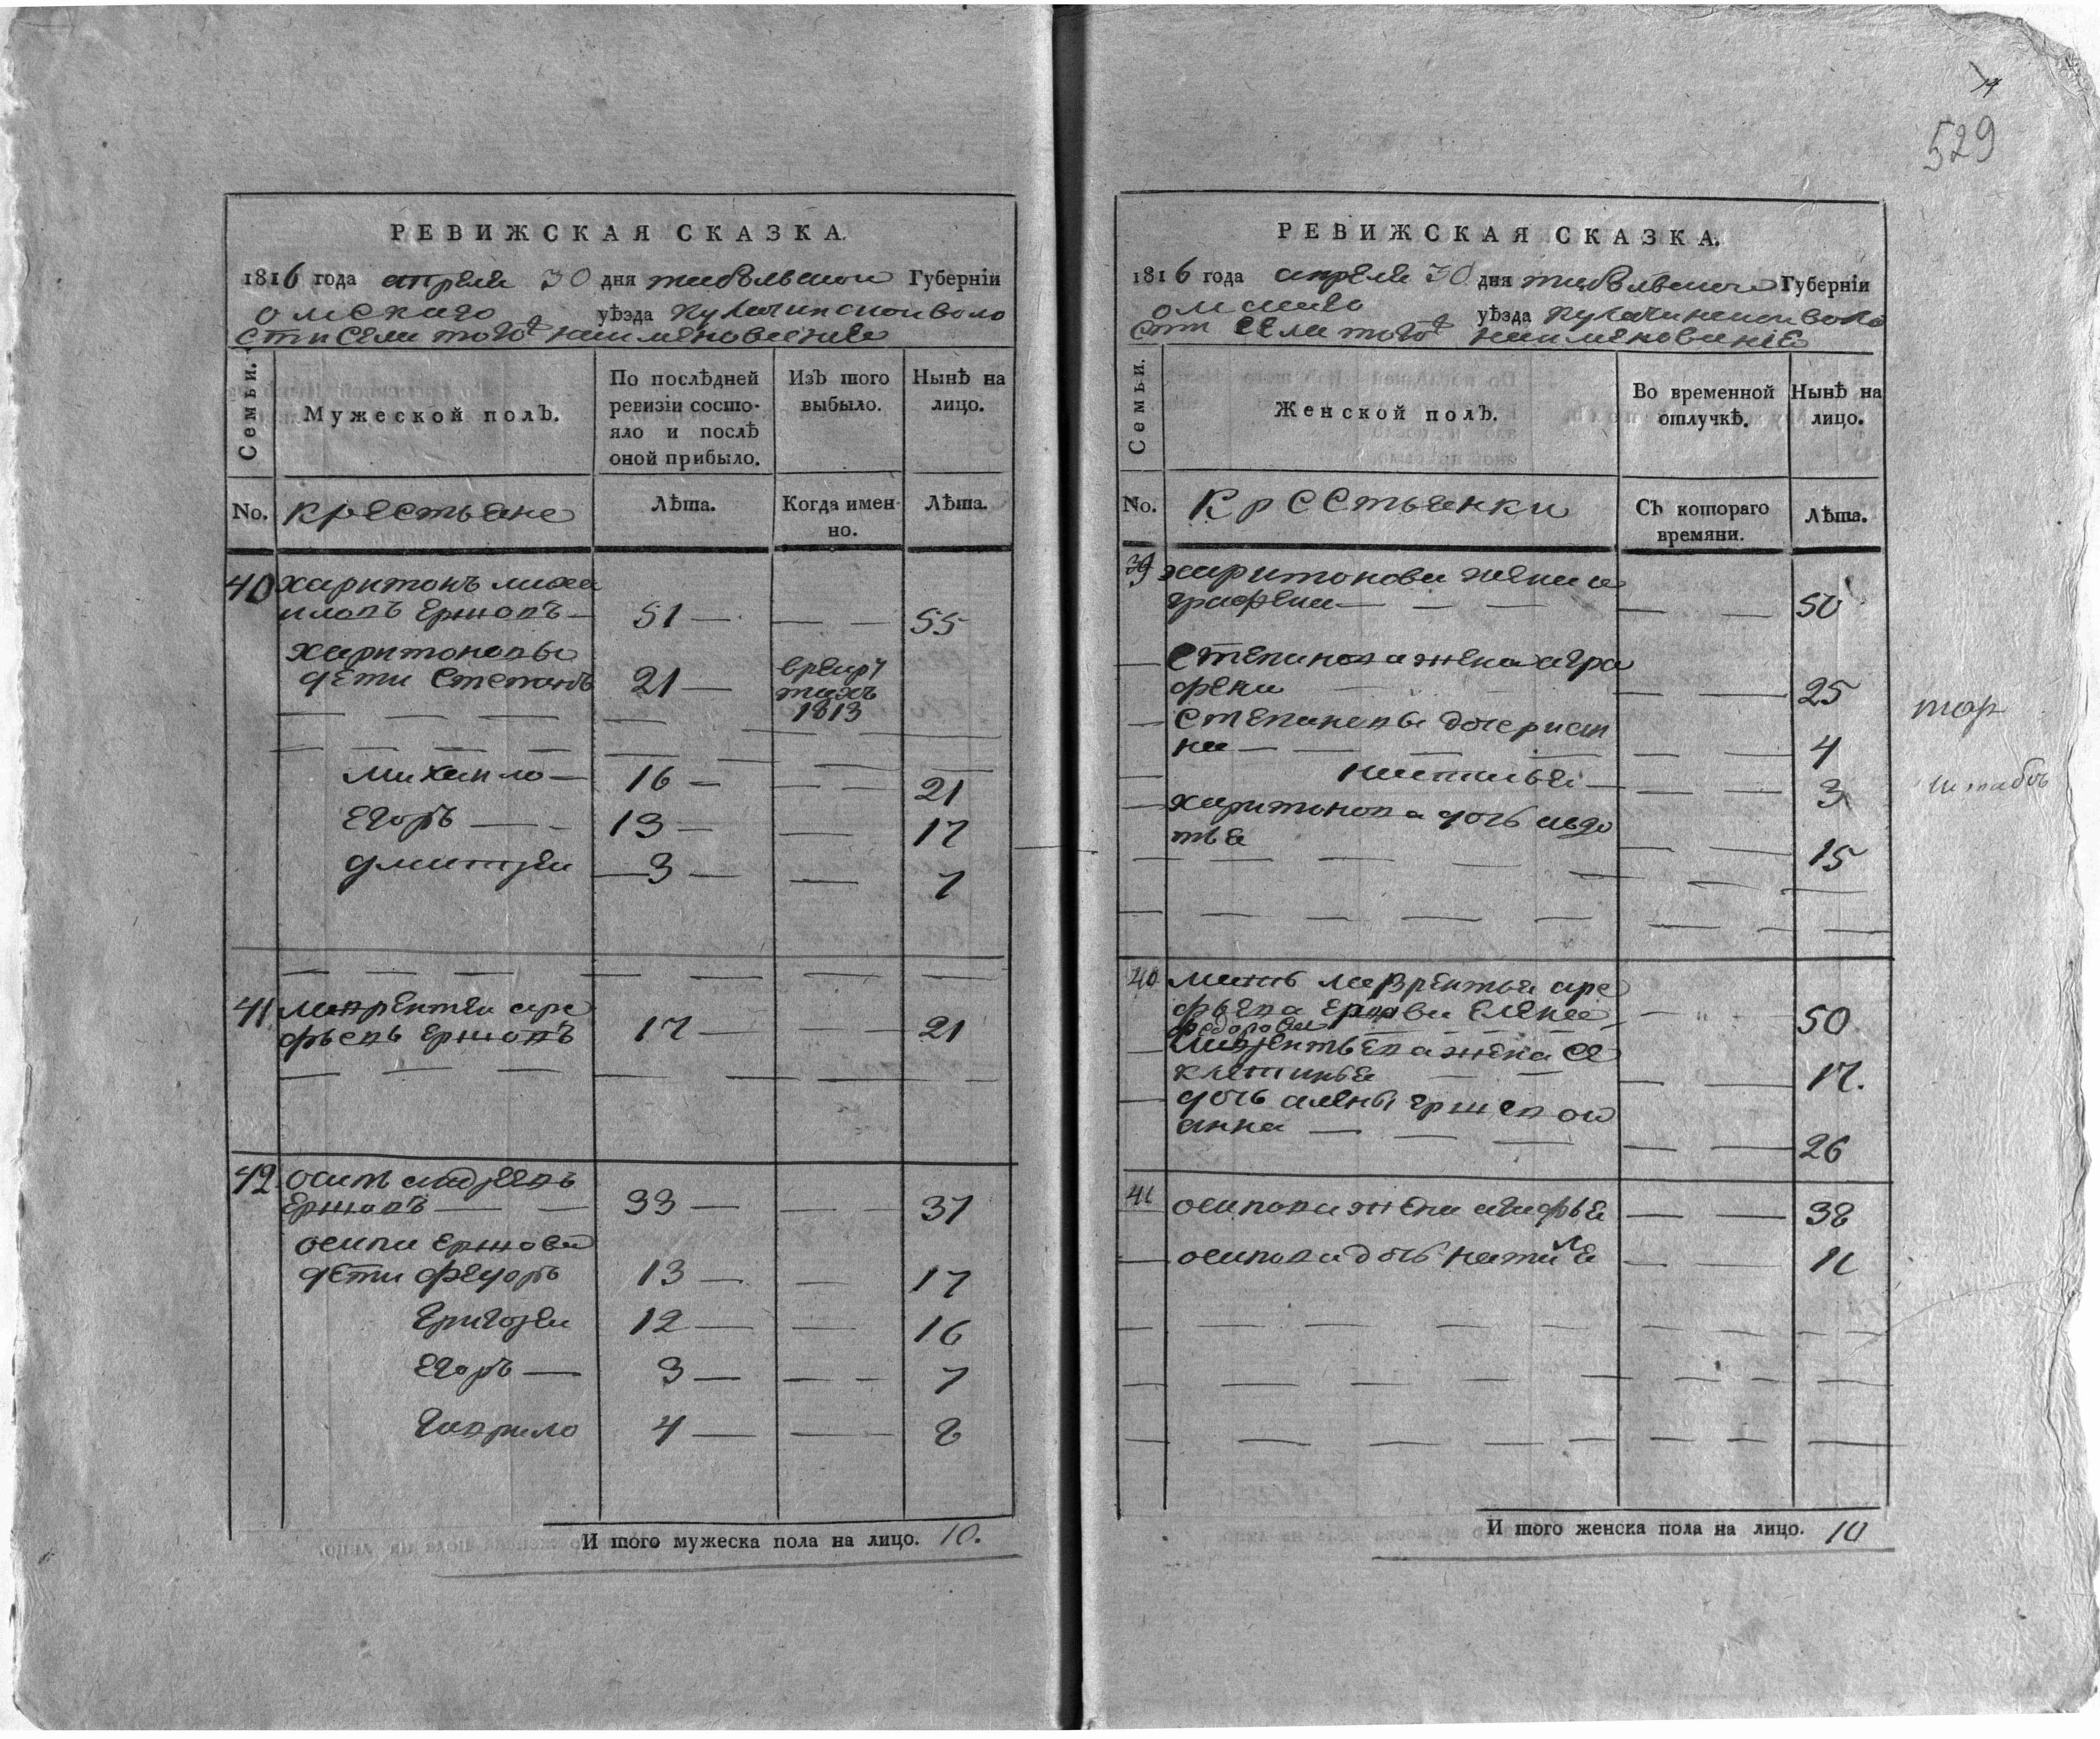 РЕВИЖСКАЯ СКАЗКА.
1816 года апреля 30 дня тобольской Губерніи
омскаго уѣзда кулачинской воло
сти села тогожъ наименование
Семьи.
Мужеской полъ.
По послѣдней
ревизіи состо-
яло и послѣ
оной прибыло.
Изъ того
выбыло.
Нынѣ на
лицо.
No. крестьяне
Лѣта.
Когда имен-
но.
Лѣта.
40 харитонъ миха
иловъ Ершовъ — 51 — — — 55
харитоновы
дети Степанъ 21 — в рекру
тахъ
1813
михаило — 16 — — — 21
Егоръ — — 13 — — 17
дмитреи — 3 — — 7
41 лаврентеи аре
фьевъ ершовъ 17 — — — 21
42 осипъ андреевъ
Ершовъ — — 33 — — — 37
осипа ершова
дети федоръ 13 — — 17
Григореи 12 — — 16
Егоръ — 3 — — — 7
Гаврило 4 — — 8
И того мужеска пола на лицо. 10.
14
529
РЕВИЖСКАЯ СКАЗКА.
1816 года апреля 30 дня тобольской Губерніи
омскаго уѣзда кулачинской воло
сти села тогожъ наименованіе
Семьи.
Женской полъ.
Во временной
отлучкѣ.
Нынѣ на
лицо.
No. Крестьянки
Съ котораго
времяни.
Лѣта.
39 харитонова жена а
графена — — — — — 50
Степанова жена агра
фена — — — 25
Степановы дочери
— — 4
наталья — — — 3
харитонова дочь авдо
тья — — 15
40 мать лаврентья аре
фьева Ершова Елена
федорова — 50
лаврентьева жена
— — 17.
дочь алены ершевои
анна — — — — — 26
41 осипова жена агафья — — 38
осипова дочь наталья — — 11
тор
И того женска пола на лицо. 10